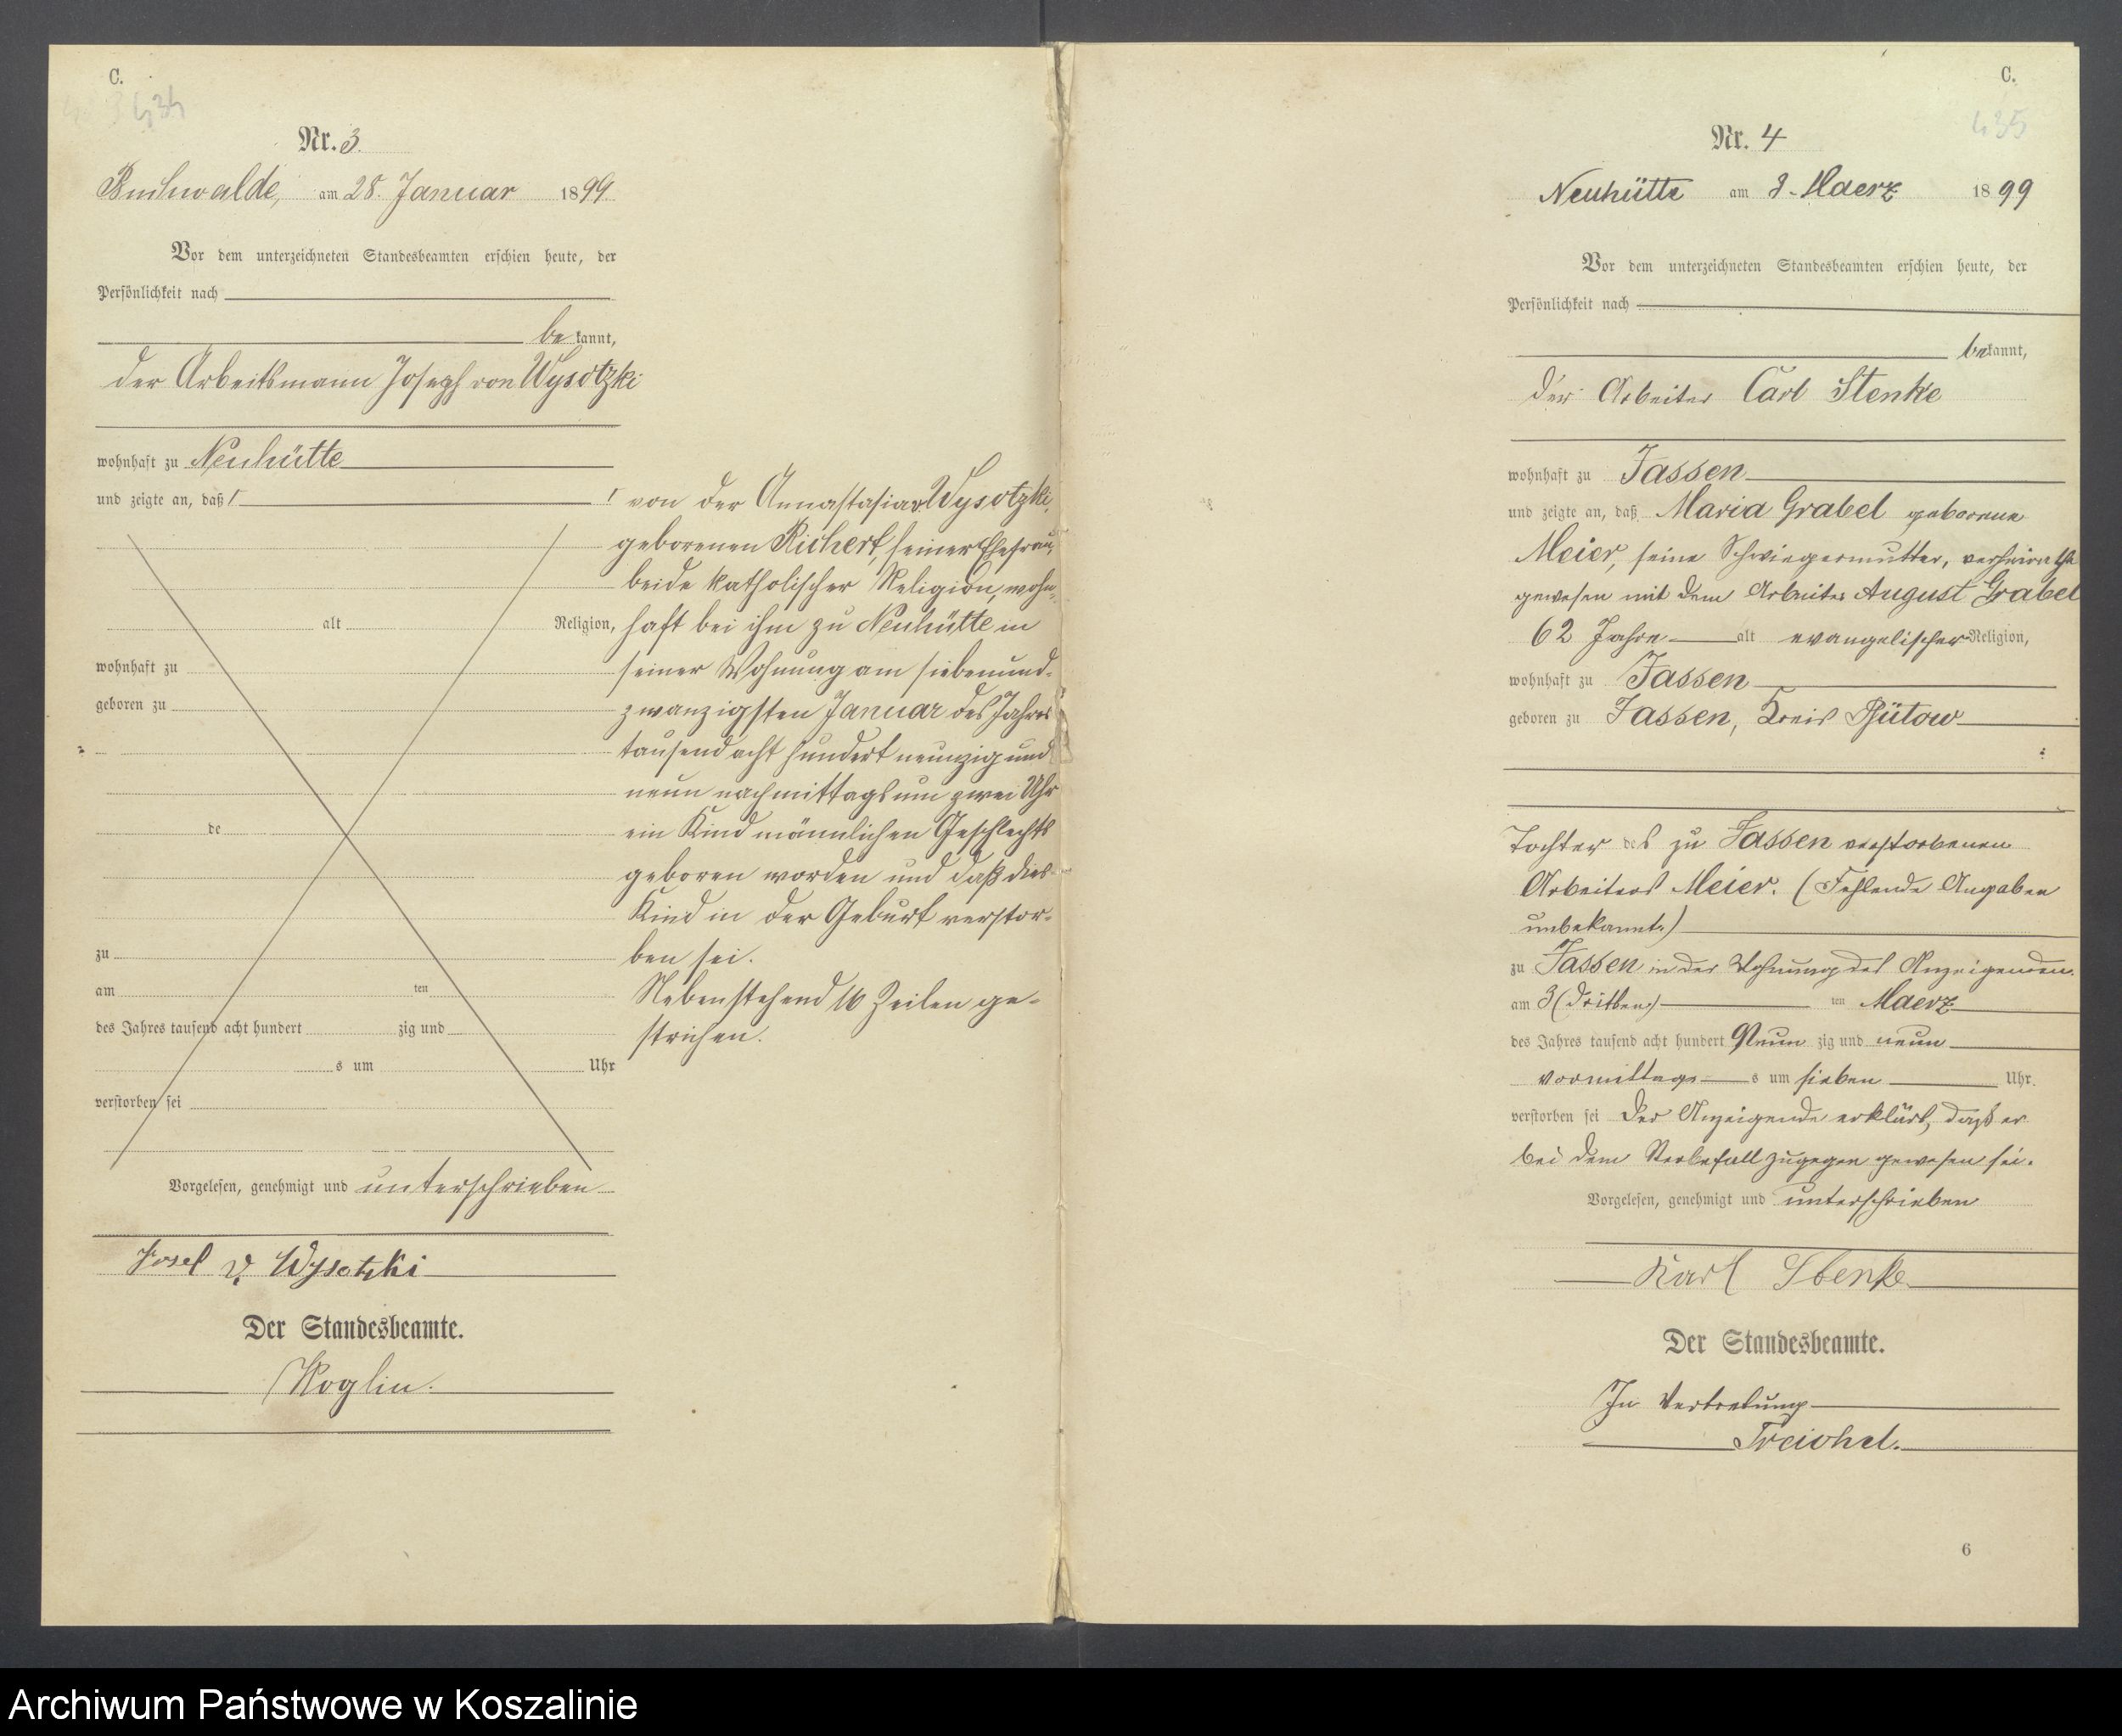 C.
434
Nr. 3.
Buchwalde, am 28. Januar 1899
Vor dem unterzeichneten Standesbeamten erschien heute, der
Persönlichkeit nach
be kannt,
der Arbeitsmann Joseph von Wysotzki
wohnhaft zu Neuhütte
und zeigte an, daß
alt Religion,
wohnhaft zu
geboren zu
de
zu
am ten
des Jahres tausend acht hundert zig und
s um Uhr
verstorben sei
von der Annastasia v Wysotzki,
geborenen Richert, seiner Ehefrau,
beide katholischer Religion, wohn-
haft bei ihm zu Neuhütte in
seiner Wohnung am siebenund-
zwanzigsten Januar des Jahres
tausend acht hundert neunzig und
neun nachmittags um zwei Uhr
ein Kind männlichen Geschlechts
geboren worden und daß dies
Kind in der Geburt verstor-
ben sei.
Nebenstehend 16 Zeilen ge-
strichen.
Vorgelesen, genehmigt und unterschrieben
Josef v. Wysotzki
Der Standesbeamte.
Koglin.
C.
435
Nr. 4
Neuhütte am 3. Maerz 1899
Vor dem unterzeichneten Standesbeamten erschien heute, der
Persönlichkeit nach
bekannt,
der Arbeiter Carl Stenke
wohnhaft zu Jassen
und zeigte an, daß Maria Grabel geborene
Meier, seine Schwiegermutter, verheirathet
gewesen mit dem Arbeiter August Grabel
62 Jahre alt evangelischer Religion,
wohnhaft zu Jassen
geboren zu Jassen, Kreis Bütow
Tochter des zu Jassen verstorbenen
Arbeiters Meier. (Fehlende Angaben
unbekannt.)
zu Jassen in der Wohnung des Anzeigenden
am 3 (dritten) ten Maerz
des Jahres tausend acht hundert Neun zig und neun
vormittags s um sieben Uhr.
verstorben sei Der Anzeigende erklärt, daß er
bei dem Sterbefall zugegen gewesen sei.
Vorgelesen, genehmigt und unterschrieben
Karl Stenke
Der Standesbeamte.
In Vertretung
Treichel.
6
Archiwum Państwowe w Koszalinie